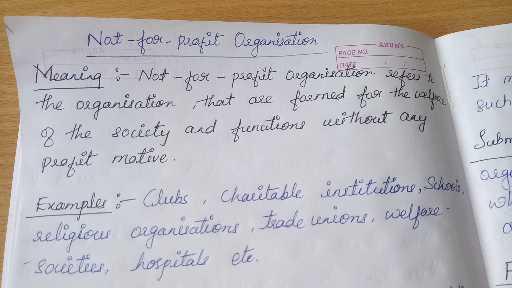 Not-for-profit Organisation
PAGE NO.
DATE
Meaning :- Not-for-profit organisation refers to
the organisation, that are formed for the welfare
of the society and functions without any
profit motive.
Examples :- Clubs, Charitable institutions, Schools,
religious organisations, trade unions, welfare-
societies, hospitals etc.
It
such
Subm
orga